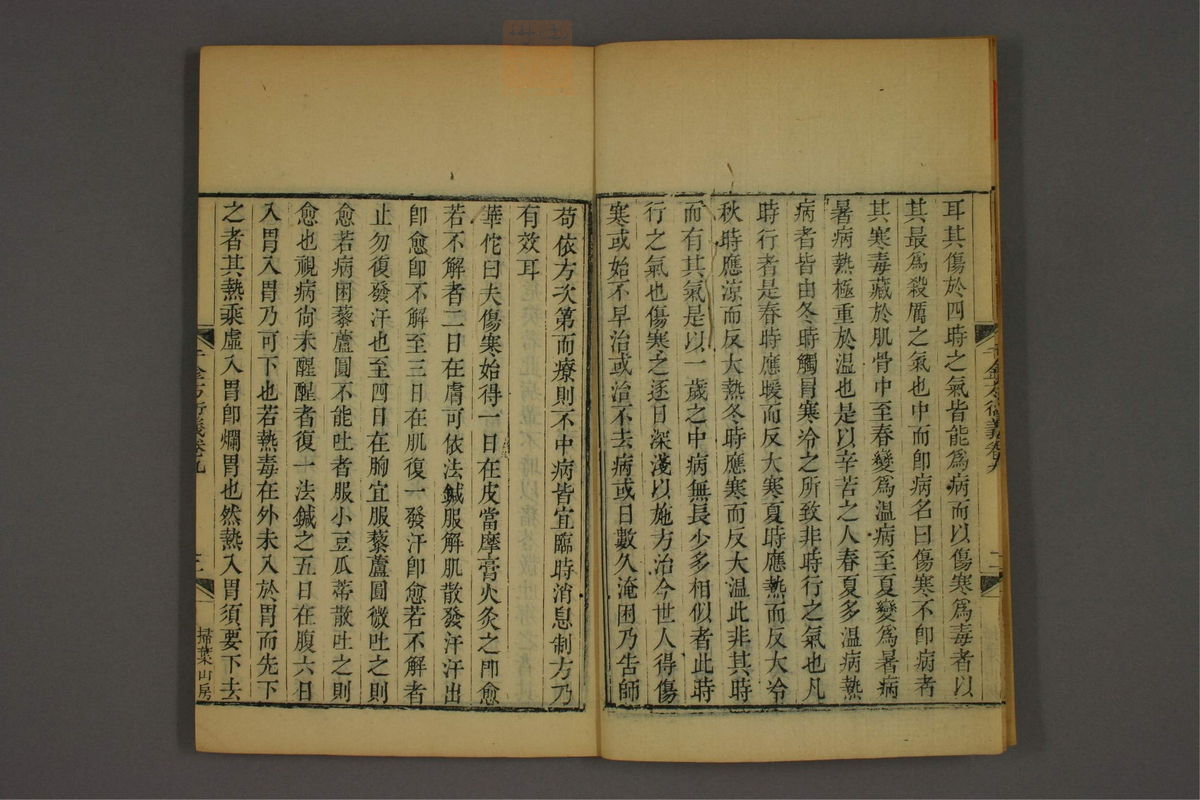 耳其傷於四時之氣皆能爲病而以傷寒爲毒者以
其最爲殺厲之氣也中而卽病名曰傷寒不卽病者
其寒毒藏於肌骨中至春變爲温病至夏變爲暑病
暑病熱極重於温也是以辛苦之人春夏多温病熱
病者皆由冬時觸冒寒冷之所致非時行之氣也凡
時行者是春時應暖而反大寒夏時應熱而反大冷
秋時應涼而反大熱冬時應寒而反大温此非其時
而有其氣是以一歲之中病無長少多相似者此時
行之氣也傷寒之逐日深淺以施方治今世人得傷
寒或始不早治或治不去病或日數久淹困乃告師
苟依方次第而療則不中病皆宜臨時消息制方乃
有效耳
華佗曰夫傷寒始得一日在皮當摩膏火灸之卽愈
若不解者二日在膚可依法鍼服解肌散發汗汗出
卽愈卽不解至三日在肌復一發汗卽愈若不解者
止勿復發汗也至四日在胸宜服藜蘆圓微吐之則
愈若病困藜蘆圓不能吐者服小豆瓜蒂散吐之則
愈也視病尚未醒醒者復一法鍼之五日在腹六日
入胃入胃乃可下也若熱毒在外未入於胃而先下
之者其熱乘虛入胃卽爛胃也然熱入胃須要下去
千金方衍義卷九
三
掃葉山房